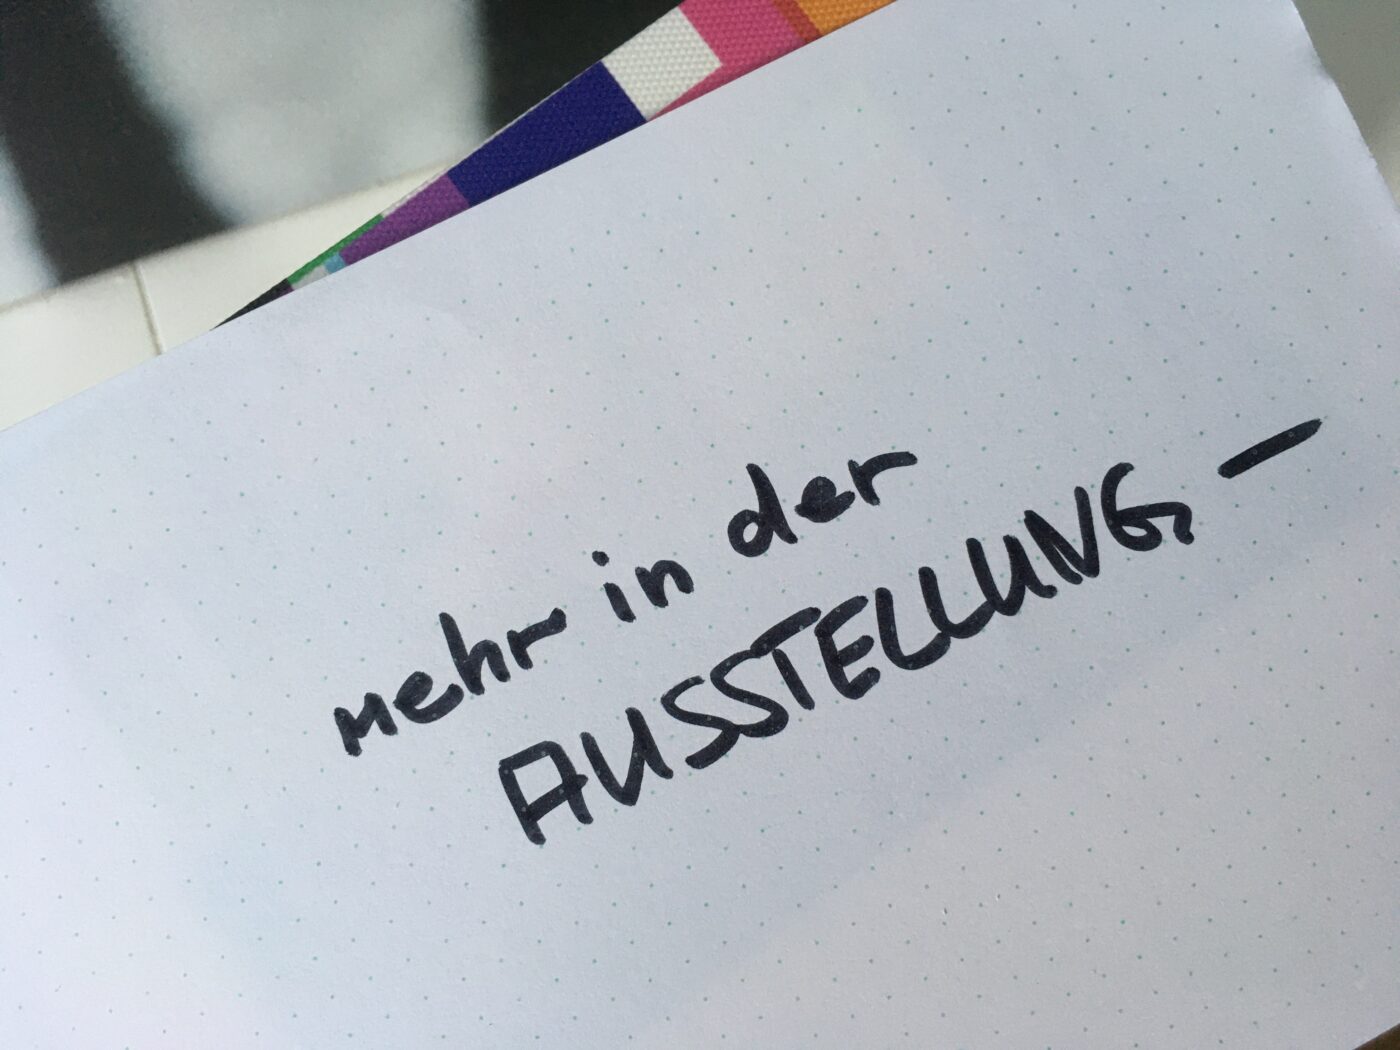 mehr in der
AUSSTELLUNG, —